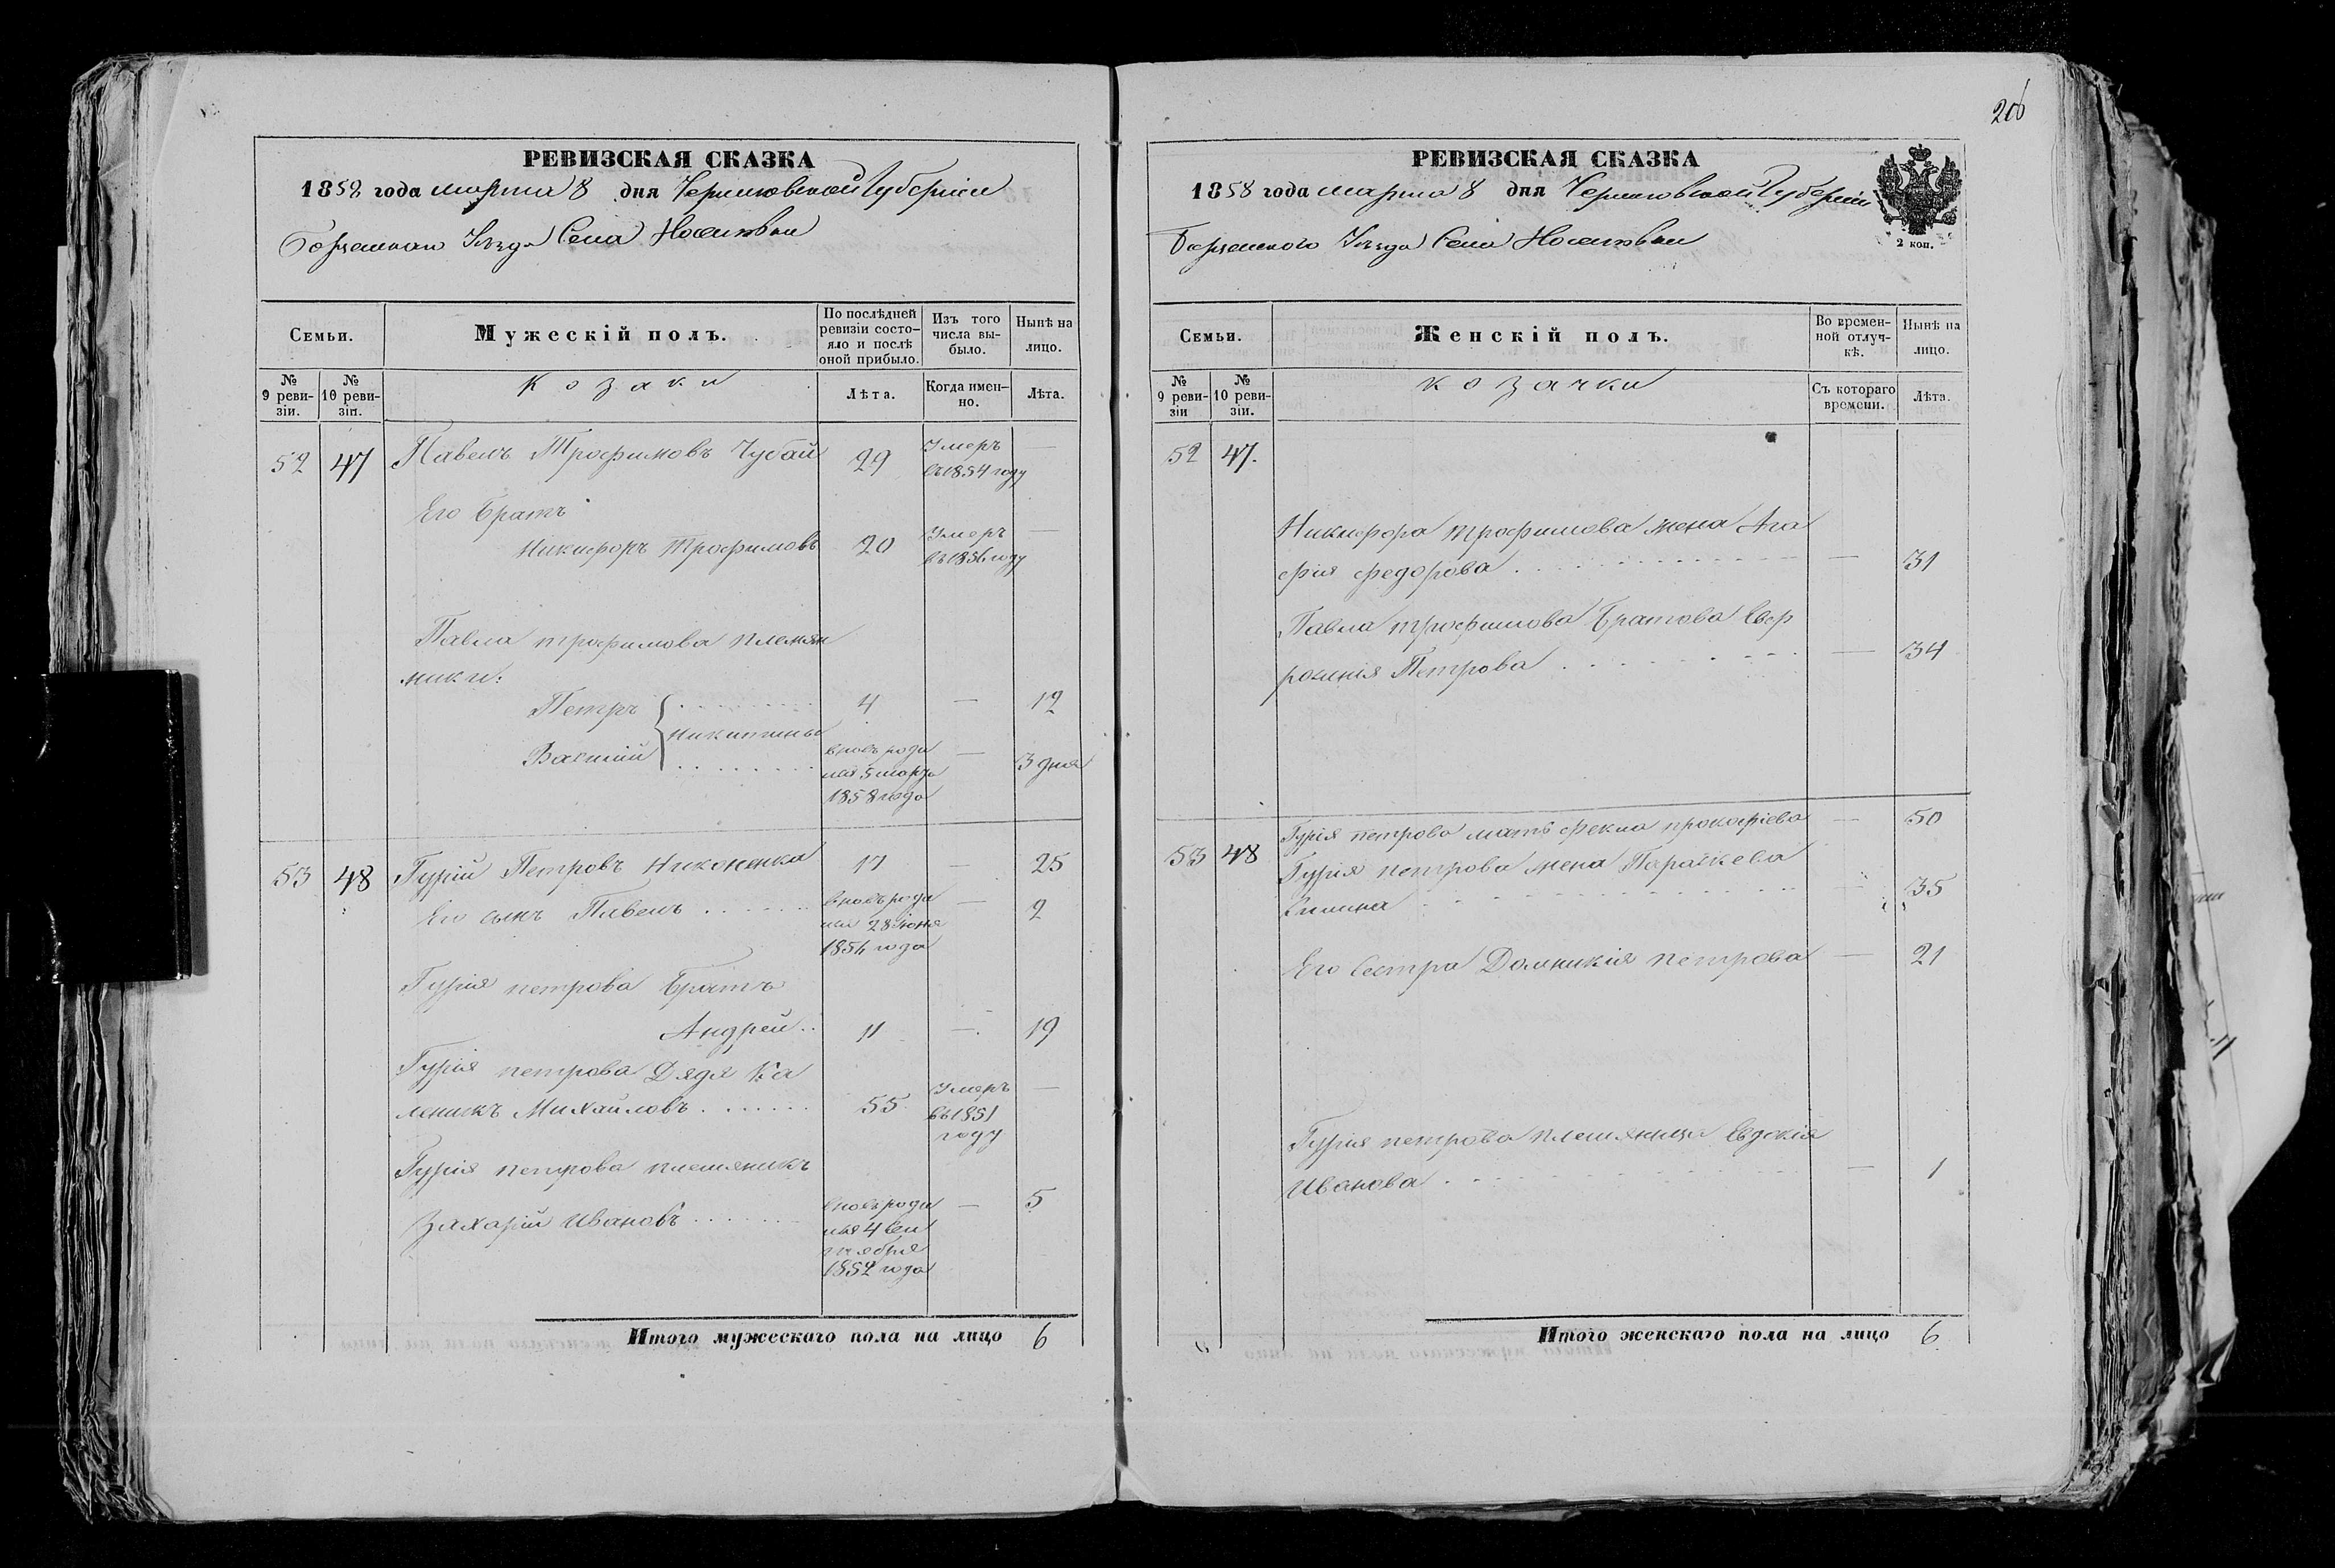 РЕВИЗСКАЯ СКАЗКА
1858 года марта 8 дня Черниговской Губернии
Борзенскаго Уезда Села Носиловки
Семьи.
Мужескій полъ.
По послѣдней ревизіи состо-
яло и послѣ
оной прибыло.
Изъ того
числа вы-
было.
Нынѣ на
лицо.
№
9 реви-
зіи.
№
10 реви-
зіи.
Козаки
Лѣта.
Когда имен-
но.
Лѣта.
52 47 Павелъ Трофимовъ Чубай 29 Умеръ
въ 1854 году —
Его братъ
Никифоръ Трофимовъ 20 Умеръ
въ 1856 году —
Павла трофимова племян
ники:
Петръ 4 — 12
Никитины
Василій вновь роди
лся 5 марта
1858 года — 3 дня
53 48 Гурій Петровъ Никоненко 17 — 25
Его сынъ Павелъ вновь роди
лся 28 іюня
1856 года — 2
Гурія петрова братъ
Андрей 11 — 19
Гурія петрова Дядя Ка
леникъ Михайловъ 55 Умеръ
въ 1851
году —
Гурія петрова племяникъ
Захарій Ивановъ вновь роди
лся 4 сен
тября
1852 года — 5
Итого мужескаго пола на лицо 6
206
РЕВИЗСКАЯ СКАЗКА
1858 года марта 8 дня Черниговской Губерніи
Борзенского Уезда Села Носиловки
2 коп.
Семьи.
Женскій полъ.
Во времен-
ной отлуч-
кѣ.
Нынѣ на
лицо.
№
9 реви-
зіи
№
10 реви-
зіи.
козачки
Съ котораго
времени.
Лѣта.
52 47.
Никифора трофимова жена Ага
фія федорова — 31
Павла трофимова братова Евф
росинія Петрова — 34
53 48 Гурія петрова мать Фекла прокофіева — 50
Гурія петрова жена Параскева
— 35
Его Сестра Домникія петрова — 21
Гурія петрова племяница Евдокія
Иванова — 1
Итого женскаго пола на лицо 6